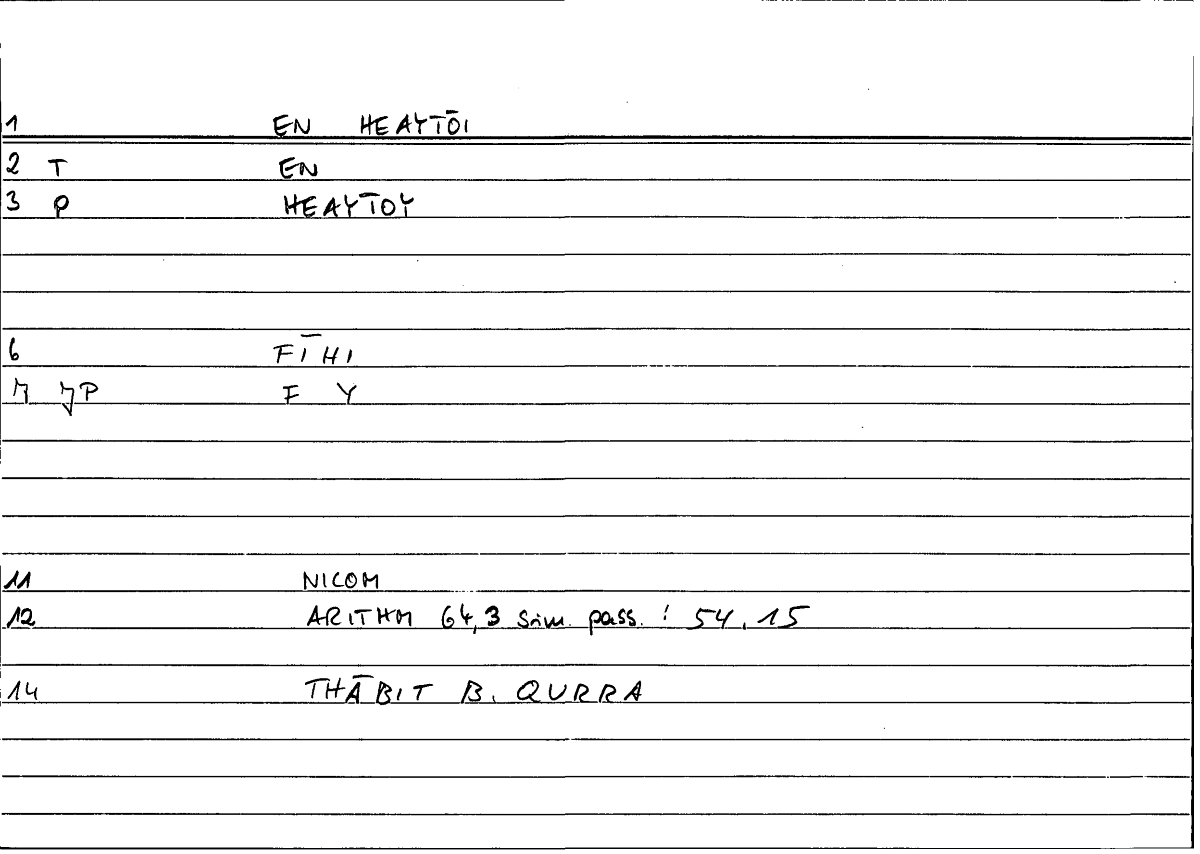 1 EN HEAYTŌI
2 T EN
3 P HEAYTOY
6 FĪHI
7 P F Y
11 NICOM
12 ARITHM 64,3 sim. pass. : 54.15
14 THĀBIT B. QURRA